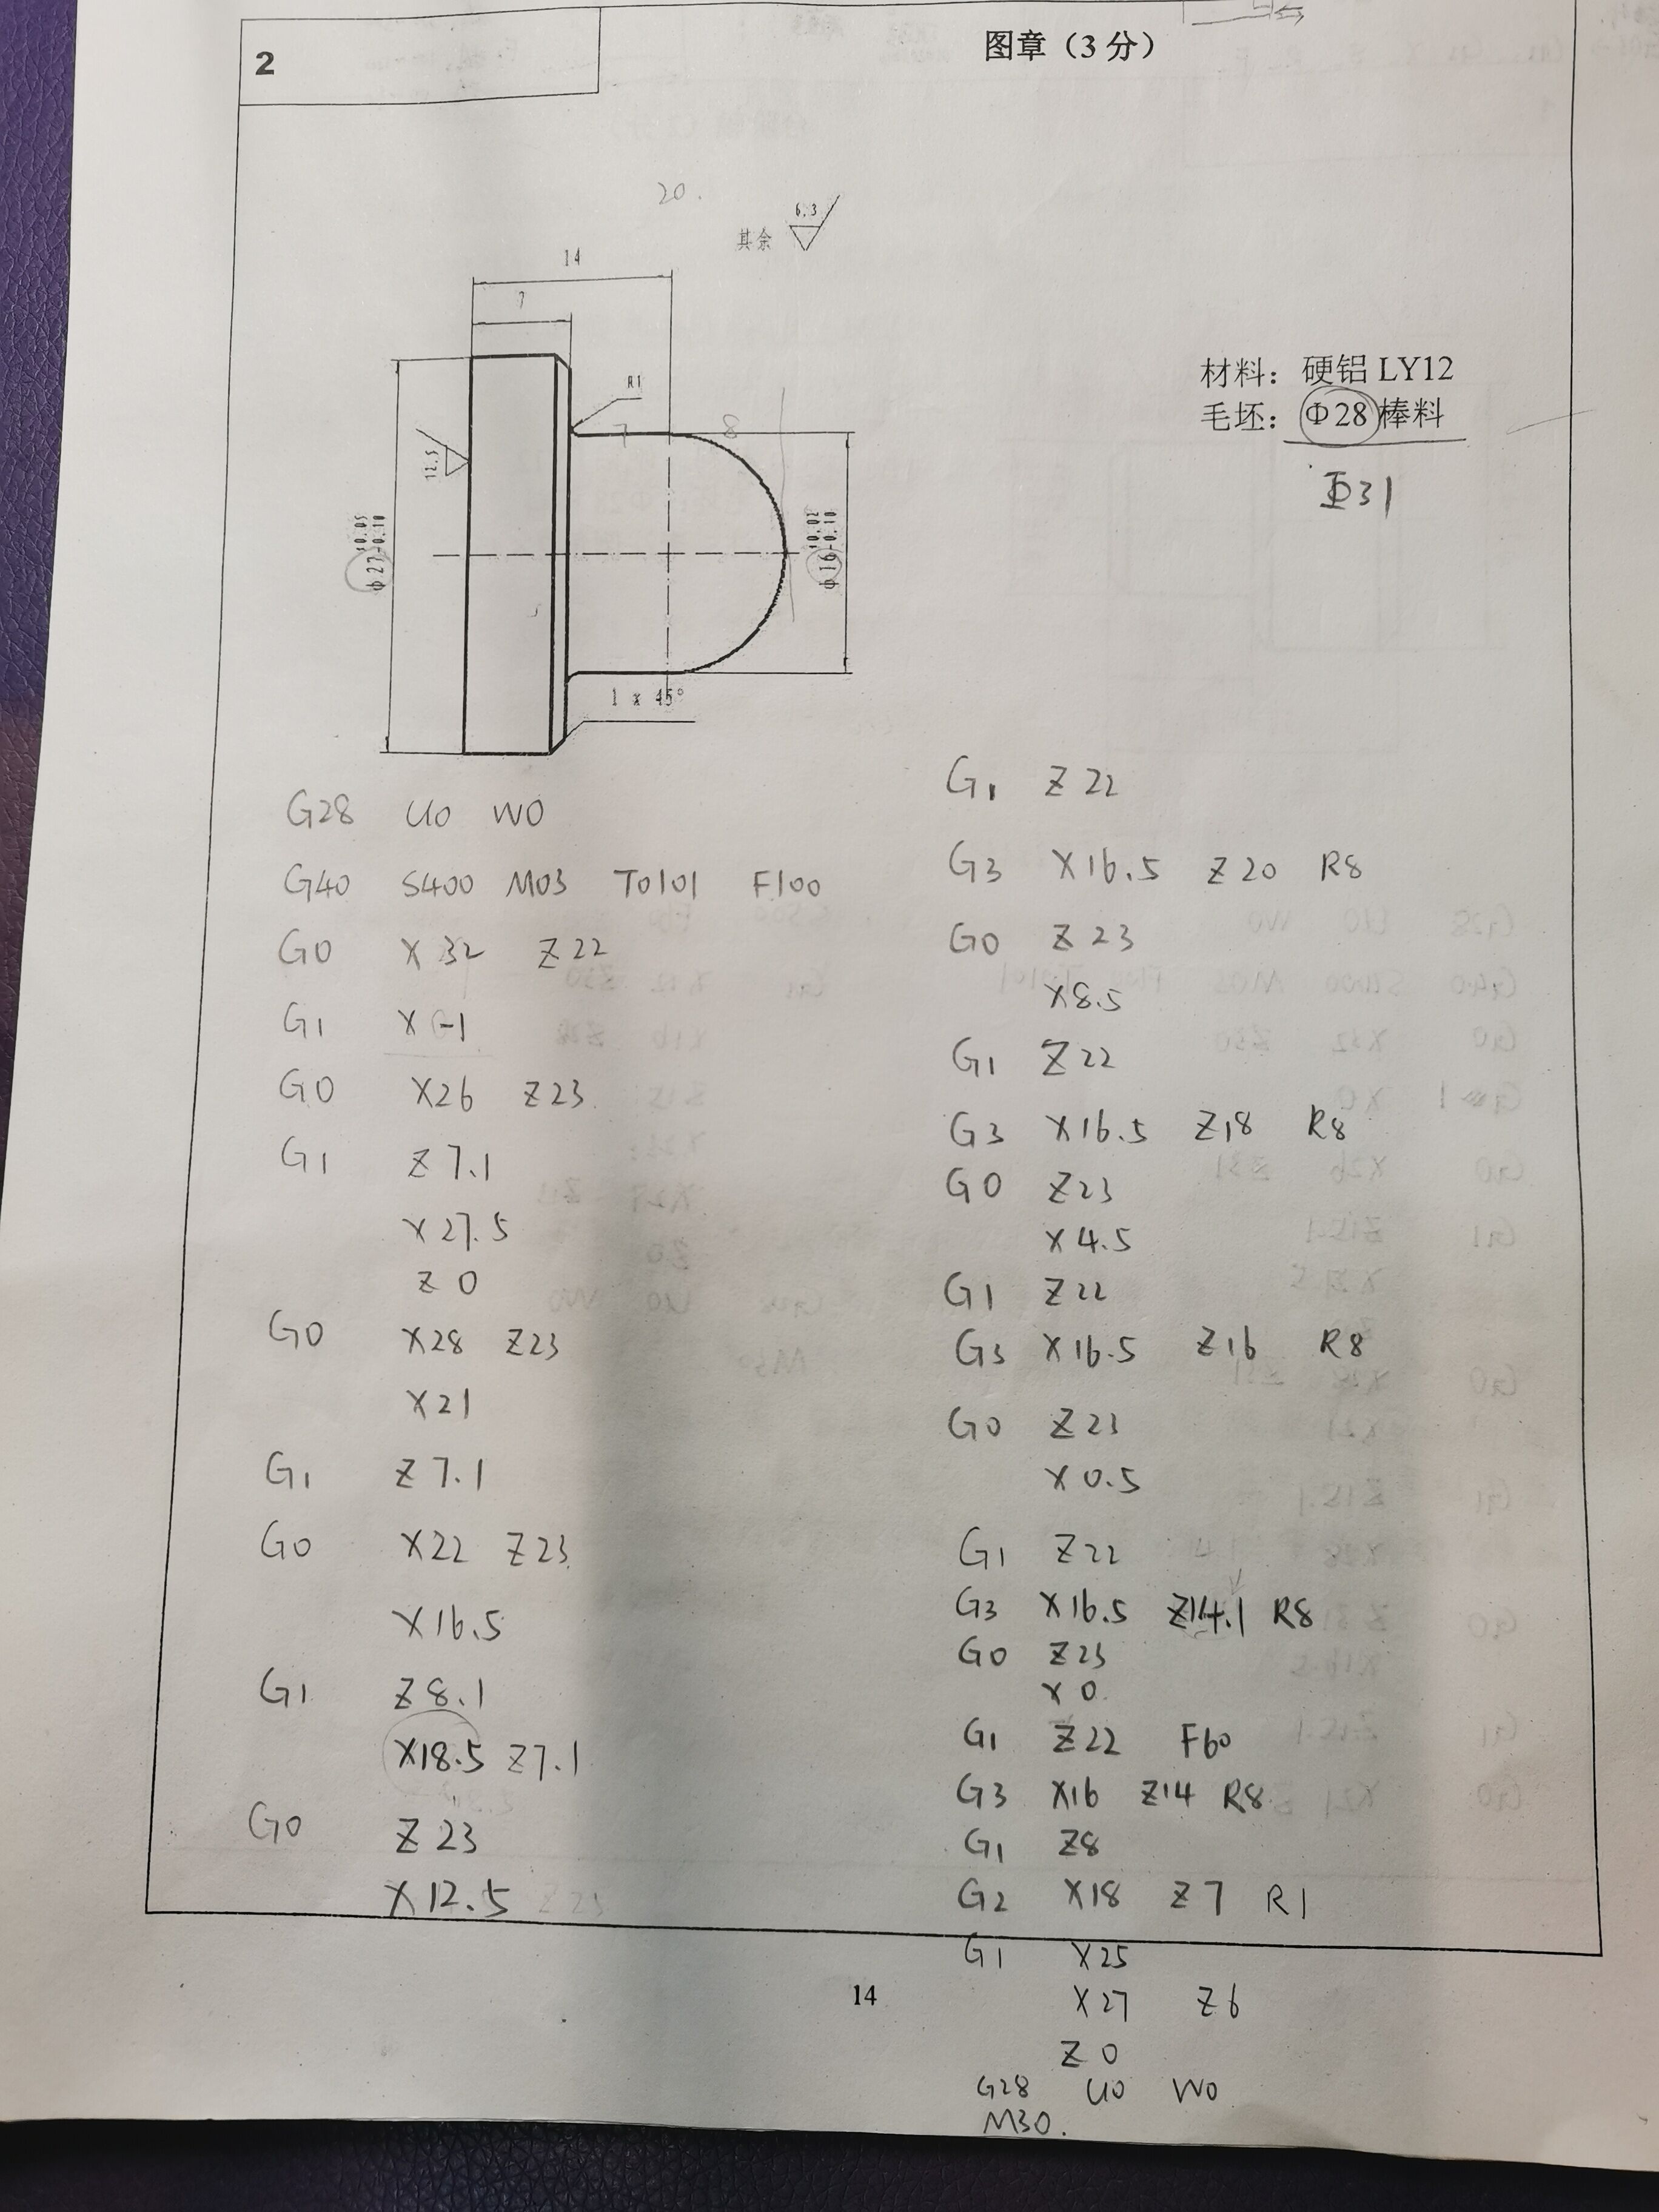 2
图章（3 分）
20.
其余
6.3
14
7
R1
7
8
12.5
φ27 -0.10
φ16 -0.10
1 x 45°
材料：硬铝 LY12
毛坯：Φ28 棒料
Φ31
G28 U0 W0
G40 S400 M03 T0101 F100
G0 X 32 Z 22
G1 X -1
G0 X26 Z 23
G1 Z 7.1
X 27.5
Z 0
G0 X28 Z23
X 21
G1 Z 7.1
G0 X22 Z23
X 16.5
G1 Z 8.1
X18.5 Z7.1
G0 Z 23
X 12.5
G1 Z 22
G3 X 16.5 Z 20 R8
G0 Z 23
X8.5
G1 Z 22
G3 X 16.5 Z18 R8
G0 Z23
X 4.5
G1 Z22
G3 X 16.5 Z 16 R8
G0 Z 23
X 0.5
G1 Z22
G3 X 16.5 Z14.1 R8
G0 Z23
X 0
G1 Z22 F60
G3 X16 Z14 R8
G1 Z8
G2 X18 Z7 R1
G1 X25
X27 Z6
Z 0
G28 U0 W0
M30.
14